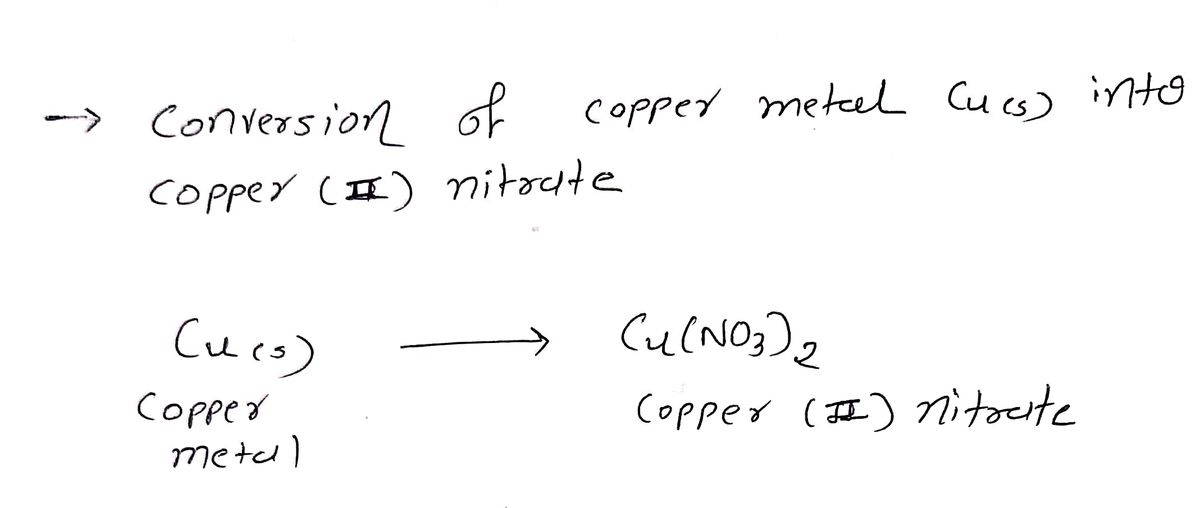 → Conversion of copper metal Cu(s) into
copper (II) nitrate
Cu(s) → Cu(NO3)2
Copper Copper (II) nitrate
metal